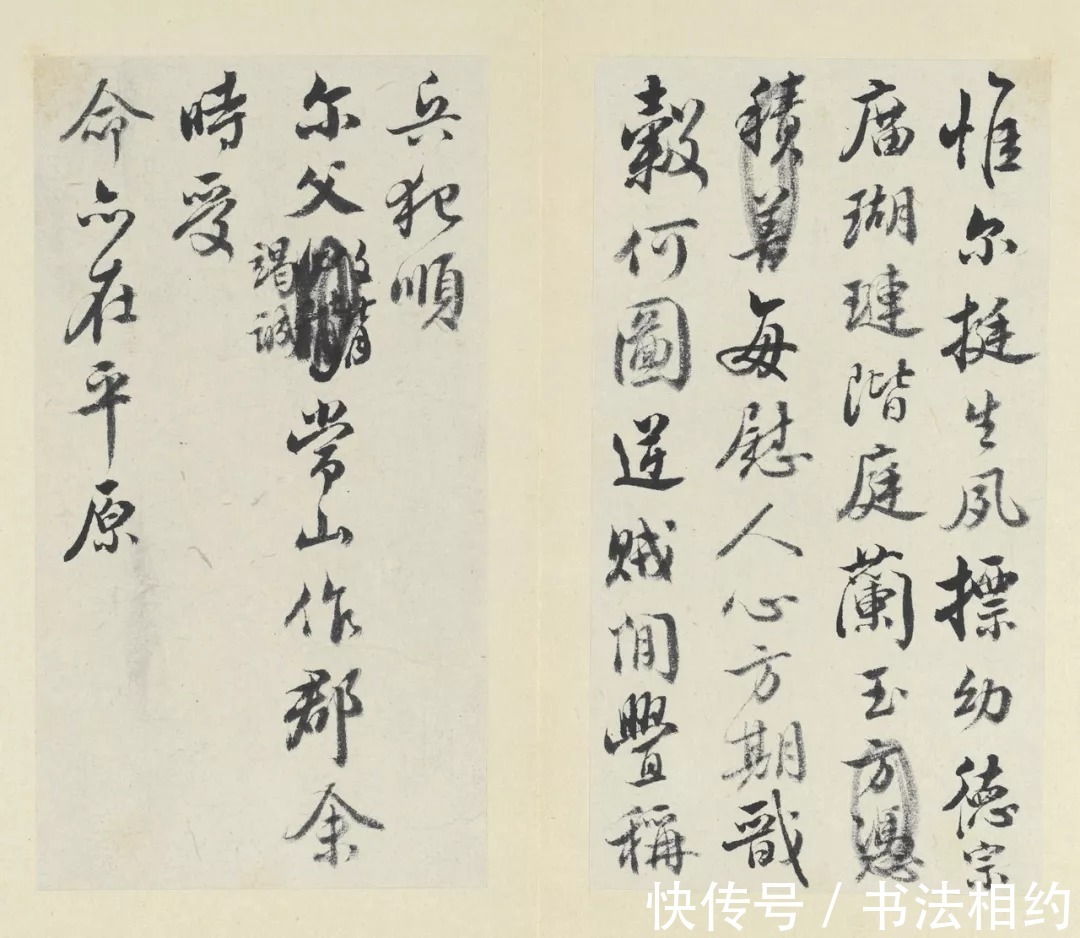 惟尔挺生夙標幼德宗
庿瑚璉階庭蘭玉方憑
積善每慰人心方期戩
穀何圖逆賊閒舋稱
兵犯順
尔父
竭誠
常山作郡余
時受
命亦在平原
快传号 / 书法相约